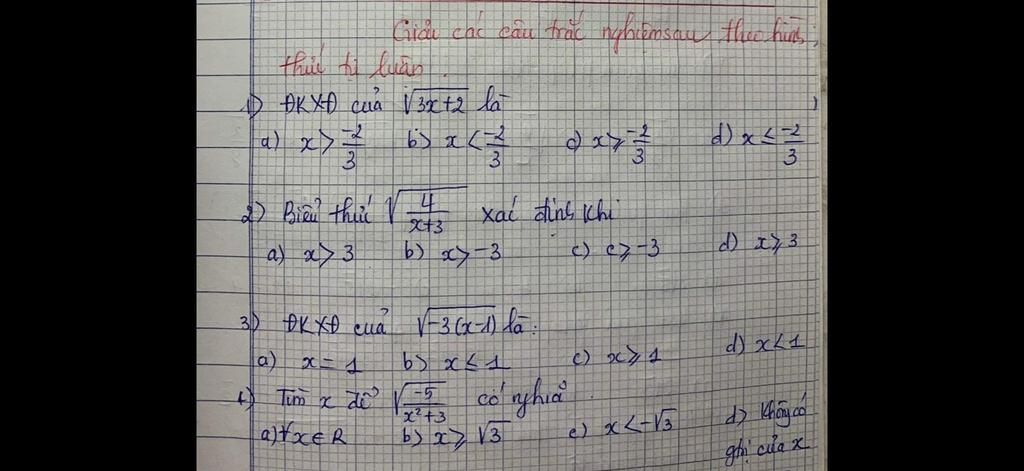 Giải các câu trắc nghiệm sau theo hình
thức tự luận.
1) ĐKXĐ của √(3x+2) là
a) x > -2/3 b) x < -2/3 c) x ≥ -2/3 d) x ≤ -2/3
2) Biểu thức √(4/(x+3)) xác định khi
a) x > 3 b) x > -3 c) c ≥ -3 d) x ≥ 3
3) ĐKXĐ của √(-3(x-1)) là:
a) x = 1 b) x ≤ 1 c) x ≥ 1 d) x < 1
4) Tìm x để √(-5/(x²+3)) có nghĩa.
a) ∀x ∈ R b) x ≥ √3 c) x < -√3 d) Không có
ghị của x